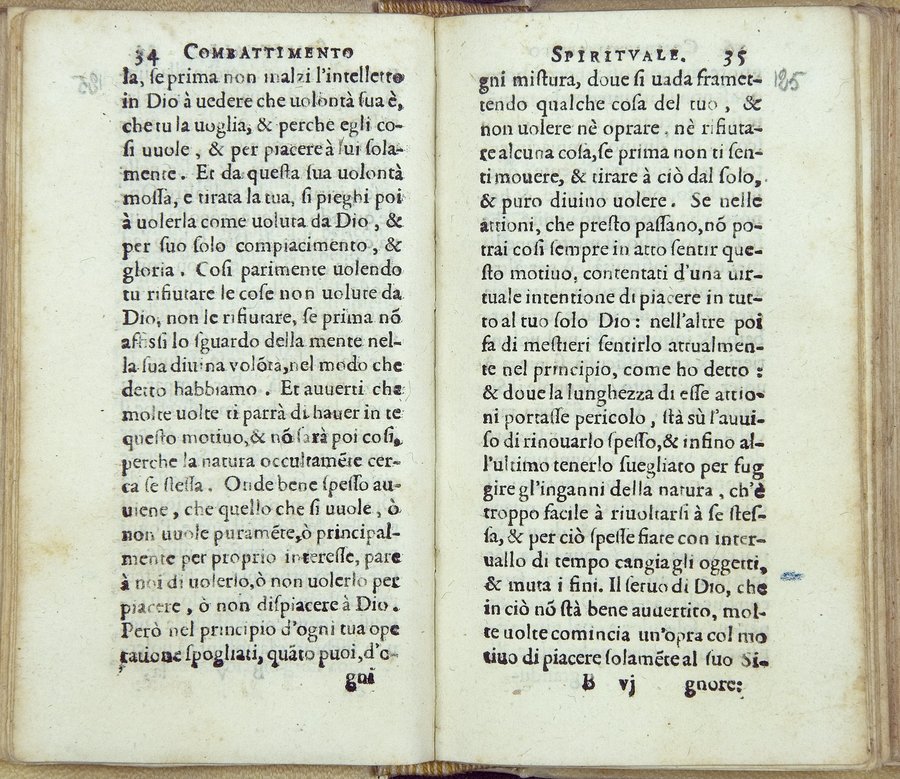 34 COMBATTIMENTO
la, se prima non inalzi l'intelletto
in Dio à uedere che uolontà sua è,
che tu la uoglia, & perche egli co-
si uuole, & per piacere à lui sola-
mente. Et da questa sua uolontà
mossa, e tirata la tua, si pieghi poi
à uolerla come uoluta da Dio, &
per suo solo compiacimento, &
gloria. Cosi parimente uolendo
tu rifiutare le cose non uolute da
Dio, non le rifiutare, se prima nõ
affissi lo sguardo della mente nel-
la sua diuina volõtà, nel modo che
detto habbiamo. Et auuerti che
molte uolte ti parrà di hauer in te
questo motiuo, & nõ sarà poi cosi,
perche la natura occultamẽte cer-
ca se stessa. Onde bene spesso au-
uiene, che quello che si uuole, ò
non uuole puramẽte, ò principal-
mente per proprio interesse, pare
à noi di uolerlo, ò non uolerlo per
piacere, ò non dispiacere à Dio.
Però nel principio d'ogni tua ope
ratione spogliati, quãto puoi, d'o-
gni
SPIRITVALE. 35
125
gni mistura, doue si uada framet-
tendo qualche cosa del tuo, &
non uolere nè oprare, nè rifiuta-
re alcuna cosa, se prima non ti sen-
ti mouere, & tirare à ciò dal solo,
& puro diuino uolere. Se nelle
attioni, che presto passano, nõ po-
trai cosi sempre in atto sentir que-
sto motiuo, contentati d'una uir-
tuale intentione di piacere in tut-
to al tuo solo Dio: nell'altre poi
fa di mestieri sentirlo attualmen-
te nel principio, come ho detto:
& doue la lunghezza di esse attio-
ni portasse pericolo, stà sù l'auui-
so di rinouarlo spesso, & infino al-
l'ultimo tenerlo suegliato per fug
gire gl'inganni della natura, ch'è
troppo facile à riuoltarsi à se stes-
sa, & per ciò spesse fiate con inter-
uallo di tempo cangia gli oggetti,
& muta i fini. Il seruo di Dio, che
in ciò nõ stà bene auuertito, mol-
te uolte comincia un'opra col mo
tiuo di piacere solamẽte al suo Si-
B vj gnore: